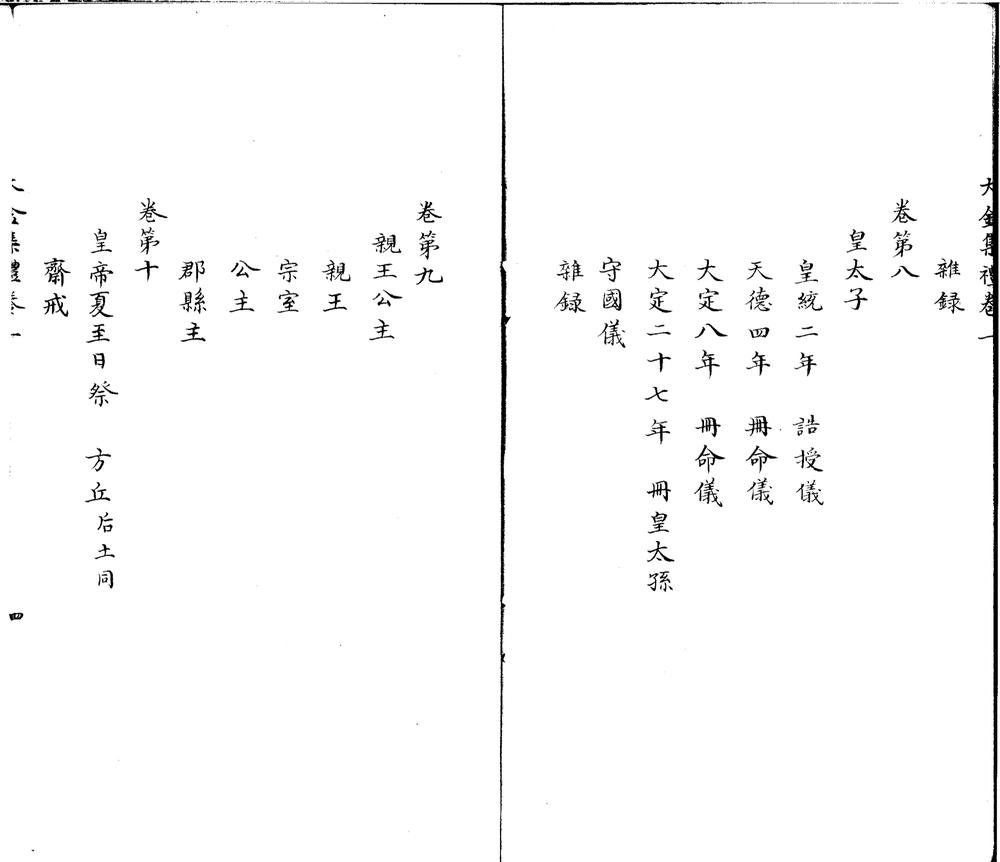 大金集禮卷一
雜録
卷第八
皇太子
皇統二年　誥授儀
天德四年　冊命儀
大定八年　冊命儀
大定二十七年　冊皇太孫
守國儀
雜録
卷第九
親王公主
親王
宗室
公主
郡縣主
卷第十
皇帝夏至日祭　方丘后土同
齋戒
大金集禮卷一
四